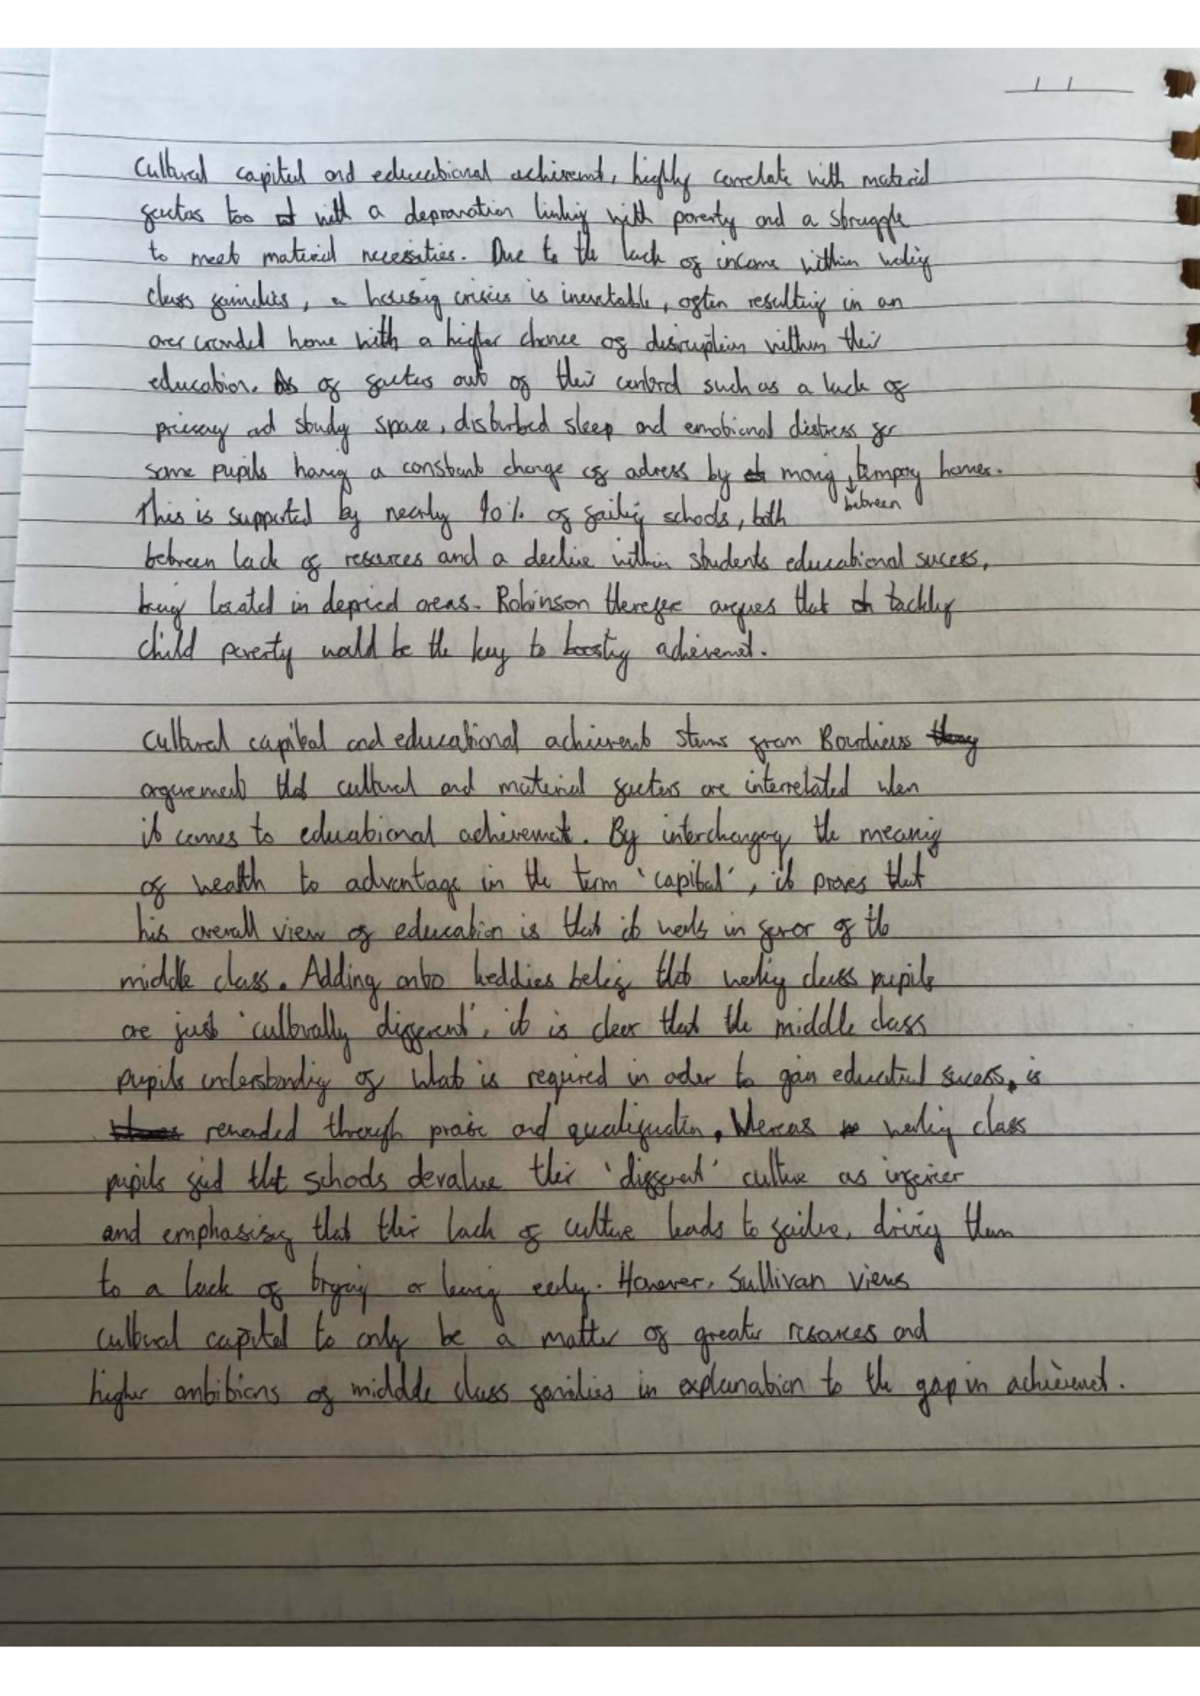 Cultural capital and educational achivemt, highly correlate with material
factors too with a depravation linking with poverty and a struggle
to meet material necessities. Due to the lack of income within working
class families, a housing crisies is inevitable, often resulting in an
over crowded home with a higher chance of disruption within their
education. As of factors out of their control such as a lack of
privacy and study space, disturbed sleep and emotional distress for
some pupils having a constant change of adress by moving between tempory homes.
This is supported by nearly 90% of failing schools, both
between lack of resources and a decline within students educational sucess,
being located in deprived areas. Robinson therefore argues that tackling
child poverty would be the key to boosting achievement.
Cultural capital and educational achievement stems from Bourdieus
arguement that cultural and material factors are interrelated when
it comes to educational achievement. By interchanging the meaning
of wealth to advantage in the term 'capital', it proves that
his overall view of education is that it works in favor of the
middle class. Adding onto keddies belief that working class pupils
are just 'culturally different', it is clear that the middle class
pupils understanding of what is required in order to gain educational sucess, is
rewarded through praise and qualification, Whereas working class
pupils find that schools devalue their 'different' culture as inferior
and emphasising that their lack of culture leads to failure, driving them
to a lack of trying or leaving early. However, Sullivan views
cultural capital to only be a matter of greater resources and
higher ambitions of middle class families in explanation to the gap in achievement.